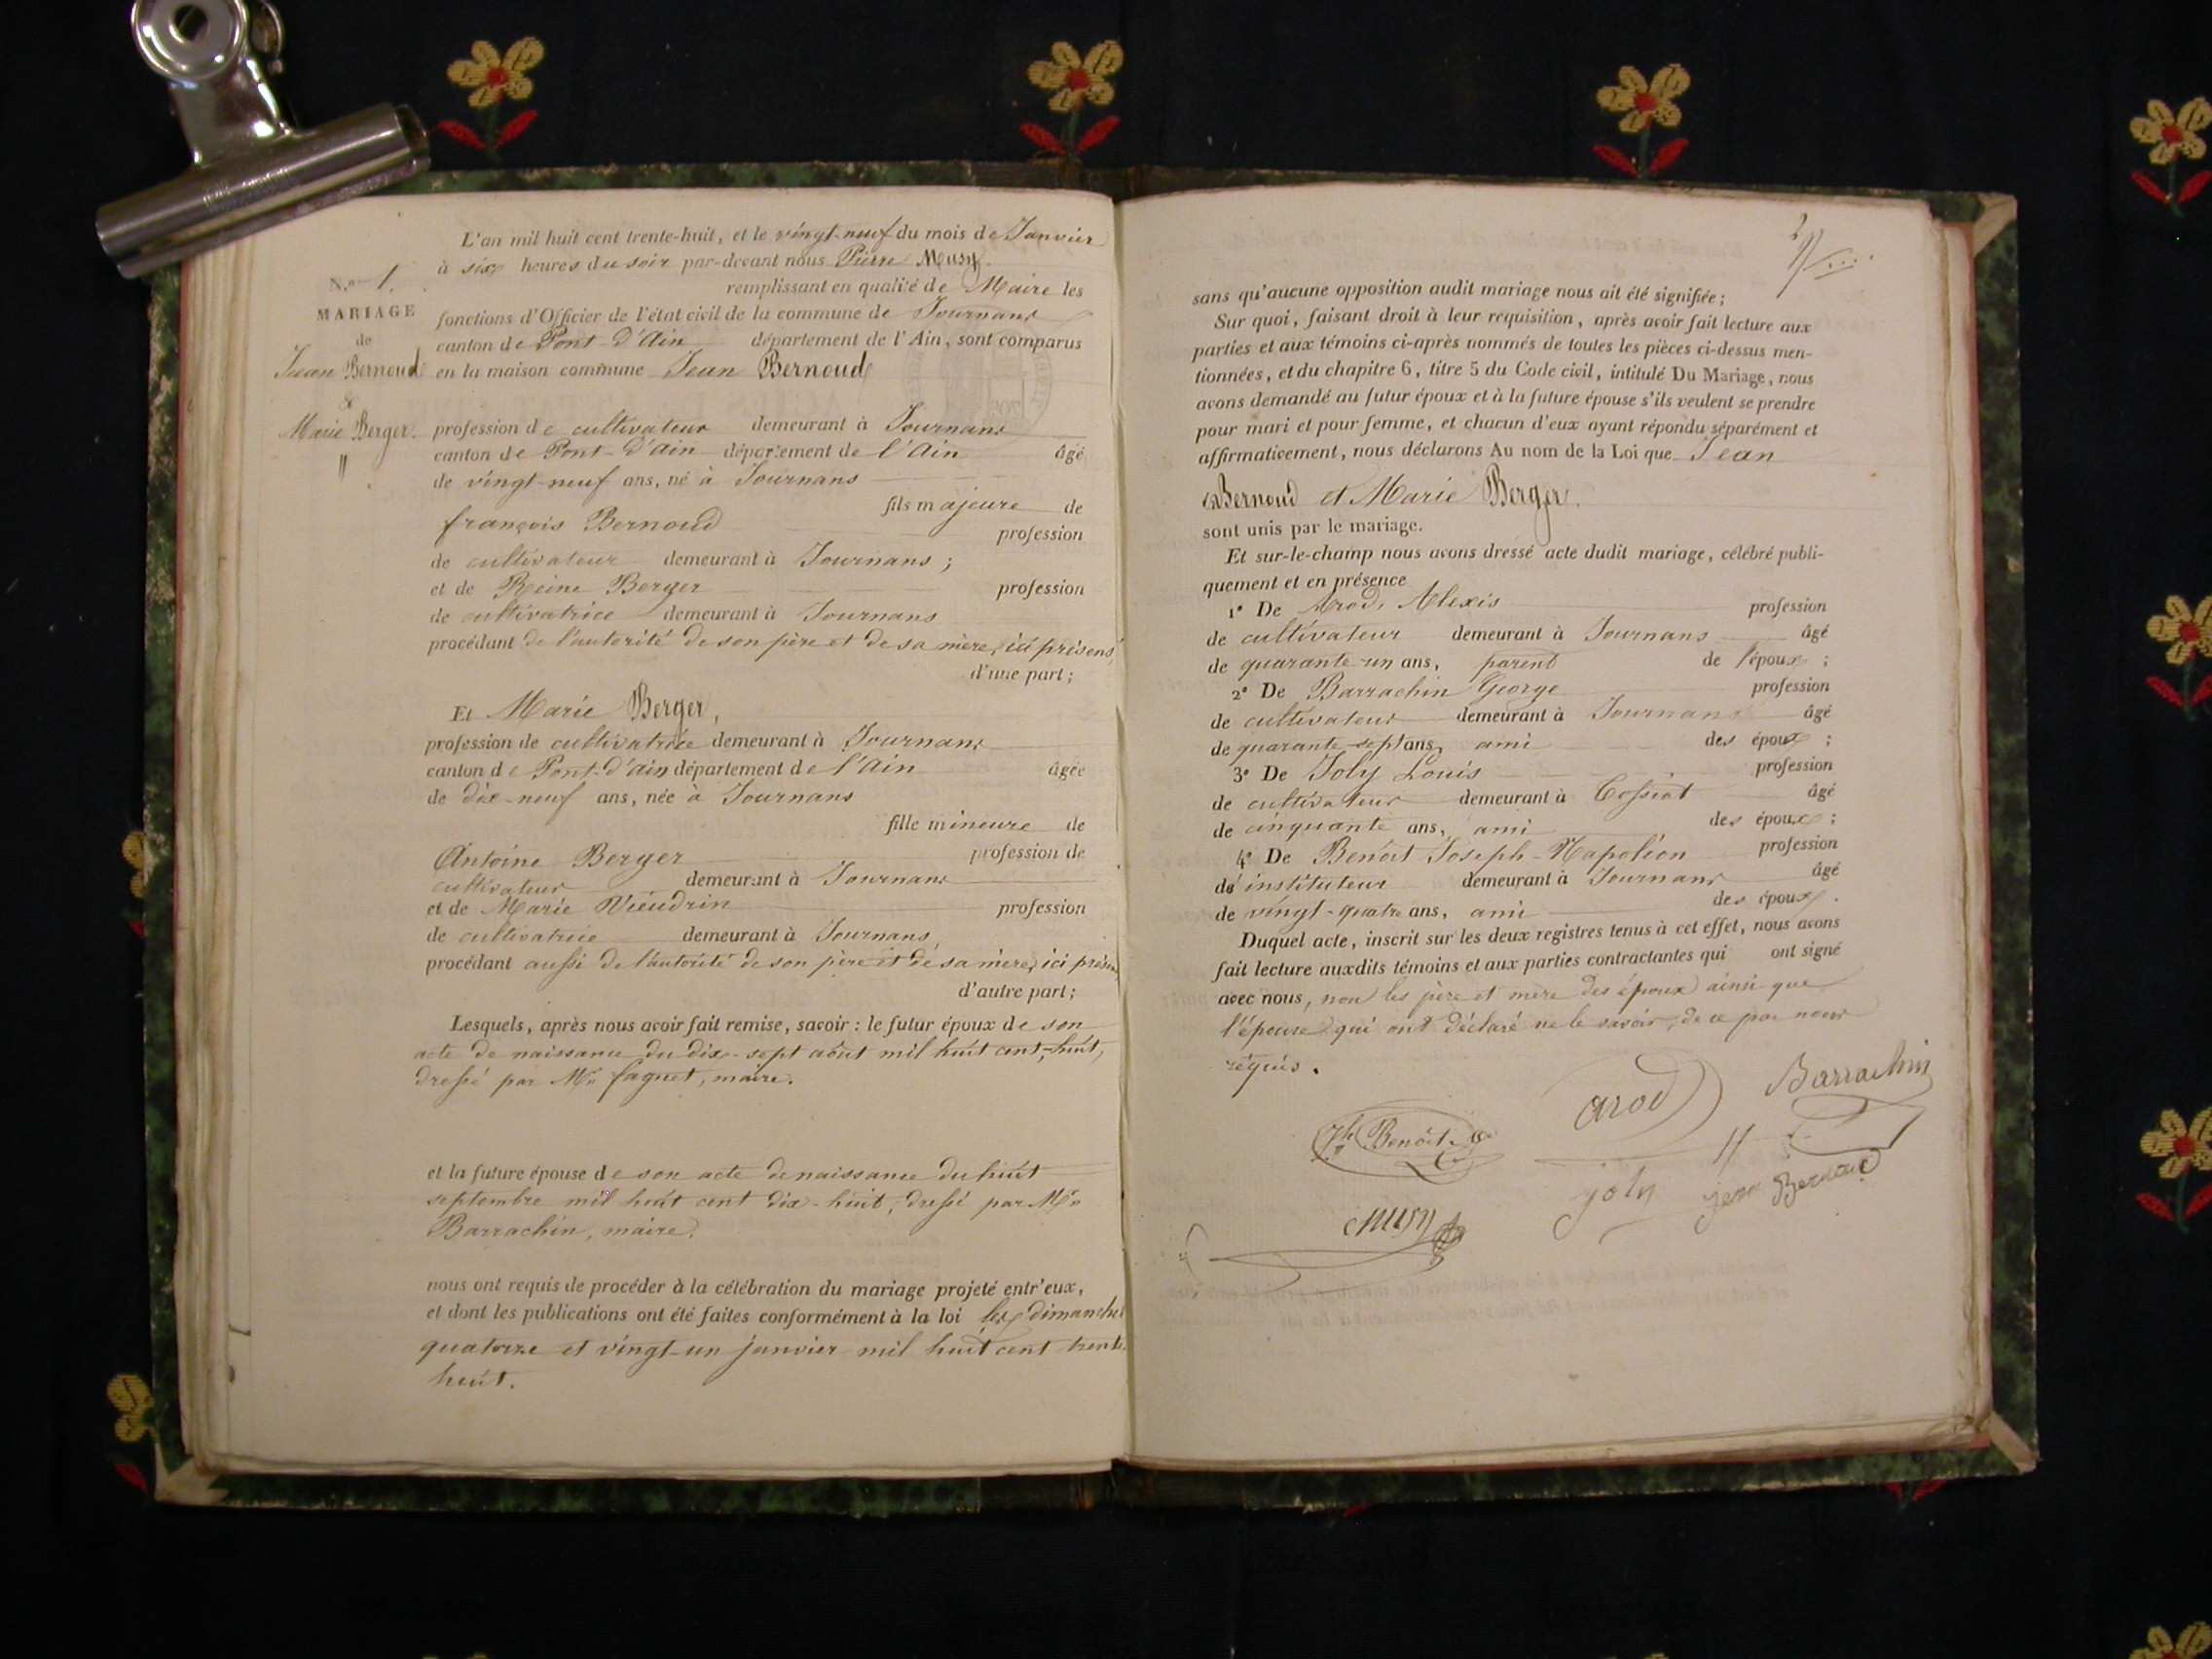 L'an mil huit cent trente-huit, et le vingt-neuf du mois de Janvier
à six heures du soir par-devant nous Pierre Musy
remplissant en qualité de Maire les
N.° 1.
MARIAGE
de
Jean Bernoud
&
Marie Berger.
fonctions d'Officier de l'état civil de la commune de Journans
canton de Pont-d'Ain département de l'Ain, sont comparus
en la maison commune Jean Bernoud
profession de cultivateur demeurant à Journans
canton de Pont-d'Ain département de l'Ain âgé
de vingt-neuf ans, né à Journans
fils majeure de
françois Bernoud profession
de cultivateur demeurant à Journans ;
et de Reine Berger profession
de cultivatrice demeurant à Journans
procédant de l'autorité de son père et de sa mère, ici présens,
d'une part ;
Et Marie Berger,
profession de cultivatrice demeurant à Journans
canton de Pont-d'Ain département de l'Ain âgée
de dix-neuf ans, née à Journans
fille mineure de
Antoine Berger profession de
cultivateur demeurant à Journans
et de Marie Vieudrin profession
de cultivatrice demeurant à Journans,
procédant aussi de l'autorité de son père et de sa mère, ici présens
d'autre part ;
Lesquels, après nous avoir fait remise, savoir : le futur époux de son
acte de naissance du dix-sept août mil huit cent-huit,
dressé par Mr. faguet, maire.
et la future épouse de son acte de naissance du huit
septembre mil huit cent dix-huit, dressé par Mr.
Barrachin, maire.
nous ont requis de procéder à la célébration du mariage projeté entr'eux,
et dont les publications ont été faites conformément à la loi les dimanches
quatorze et vingt-un janvier mil huit cent trente
huit.
2
sans qu'aucune opposition audit mariage nous ait été signifiée ;
Sur quoi, faisant droit à leur requisition, après avoir fait lecture aux
parties et aux témoins ci-après nommés de toutes les pièces ci-dessus men-
tionnées, et du chapitre 6, titre 5 du Code civil, intitulé Du Mariage, nous
avons demandé au futur époux et à la future épouse s'ils veulent se prendre
pour mari et pour femme, et chacun d'eux ayant répondu séparément et
affirmativement, nous déclarons Au nom de la Loi que Jean
Bernoud et Marie Berger.
sont unis par le mariage.
Et sur-le-champ nous avons dressé acte dudit mariage, célébré publi-
quement et en présence
1° De Arod, Alexis profession
de cultivateur demeurant à Journans âgé
de quarante-un ans, parent de l'époux ;
2° De Barrachin George profession
de cultivateur demeurant à Journans âgé
de quarante-sept ans, ami des époux ;
3° De Joly Louis profession
de cultivateur demeurant à Cossiat âgé
de cinquante ans, ami des époux ;
4° De Benoit Joseph-Napoléon profession
de instituteur demeurant à Journans âgé
de vingt-quatre ans, ami des époux.
Duquel acte, inscrit sur les deux registres tenus à cet effet, nous avons
fait lecture auxdits témoins et aux parties contractantes qui ont signé
avec nous, non les père et mère des époux ainsi que
l'épouse qui ont déclaré ne le savoir, de ce par nous
réquis.
arod
Barrachin
Jh Benoit
joly
jean Bernoud
Musy